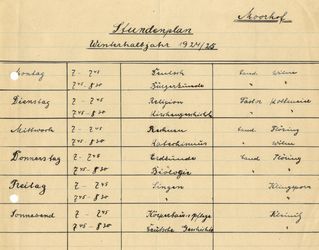 Moorhof
Stundenplan
Winterhalbjahr 1924/25
Montag 7 - 7⁴⁵ Deutsch Cand. Witne
7⁴⁵ - 8³⁰ Bürgerkunde " "
Dienstag 7 - 7⁴⁵ Religion Pastor
7⁴⁵ - 8³⁰ Kirchengeschicht " "
Mittwoch 7 - 7⁴⁵ Rechnen Cand. Flöring
7⁴⁵ - 8³⁰ Katechismus " Witne
Donnerstag 7 - 7⁴⁵ Erdkunde Cand. Flöring
7⁴⁵ - 8³⁰ Biologie " "
Freitag 7 - 7⁴⁵ Singen Klingspore
7⁴⁵ - 8³⁰ " "
Sonnabend 7 - 7⁴⁵ Körperhaus pflege
7⁴⁵ - 8³⁰ Deutsche Geschichte "